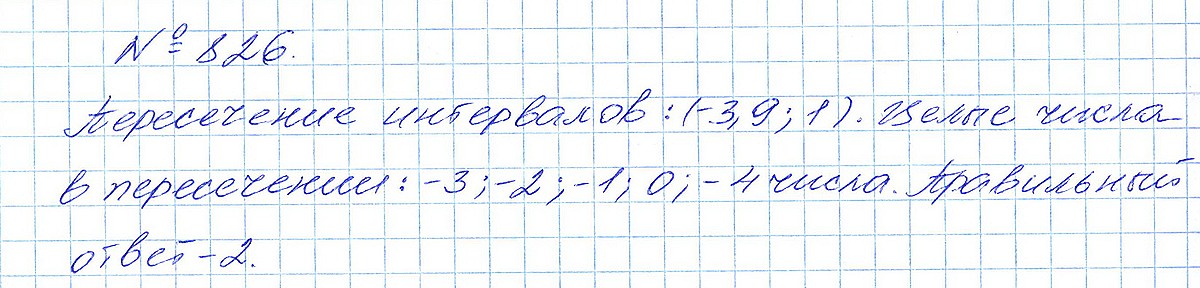 № 826.
Пересечение интервалов : (-3,9 ; 1). Целые числа
в пересечении : -3 ; -2 ; -1 ; 0 ; - 4 числа. Правильный
ответ - 2.